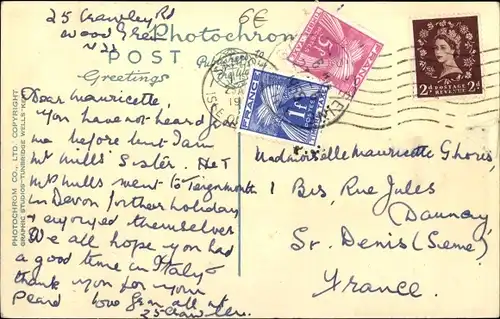 25 Crawley Rd
Wood Green
N 22
6€
Photochrom
POST
Greetings
FRANCE
1F
5F
2D POSTAGE REVENUE 2D
PHOTOCHROM CO., LTD. COPYRIGHT
GRAPHIC STUDIOS TUNBRIDGE WELLS KENT
Dear Mauricette,
You have not heard of
me before but I am
Mr Mills' Sister. He &
Mrs Mills went to Teignmouth
in Devon for their holidays
& enjoyed themselves
We all hope you had
a good time in Italy
thank you for your
Peard Love from all at
25 Crawley
Mademoiselle Mauricette Ghoris
1 Bis, Rue Jules
Daunay,
St. Denis (Seine)
France.